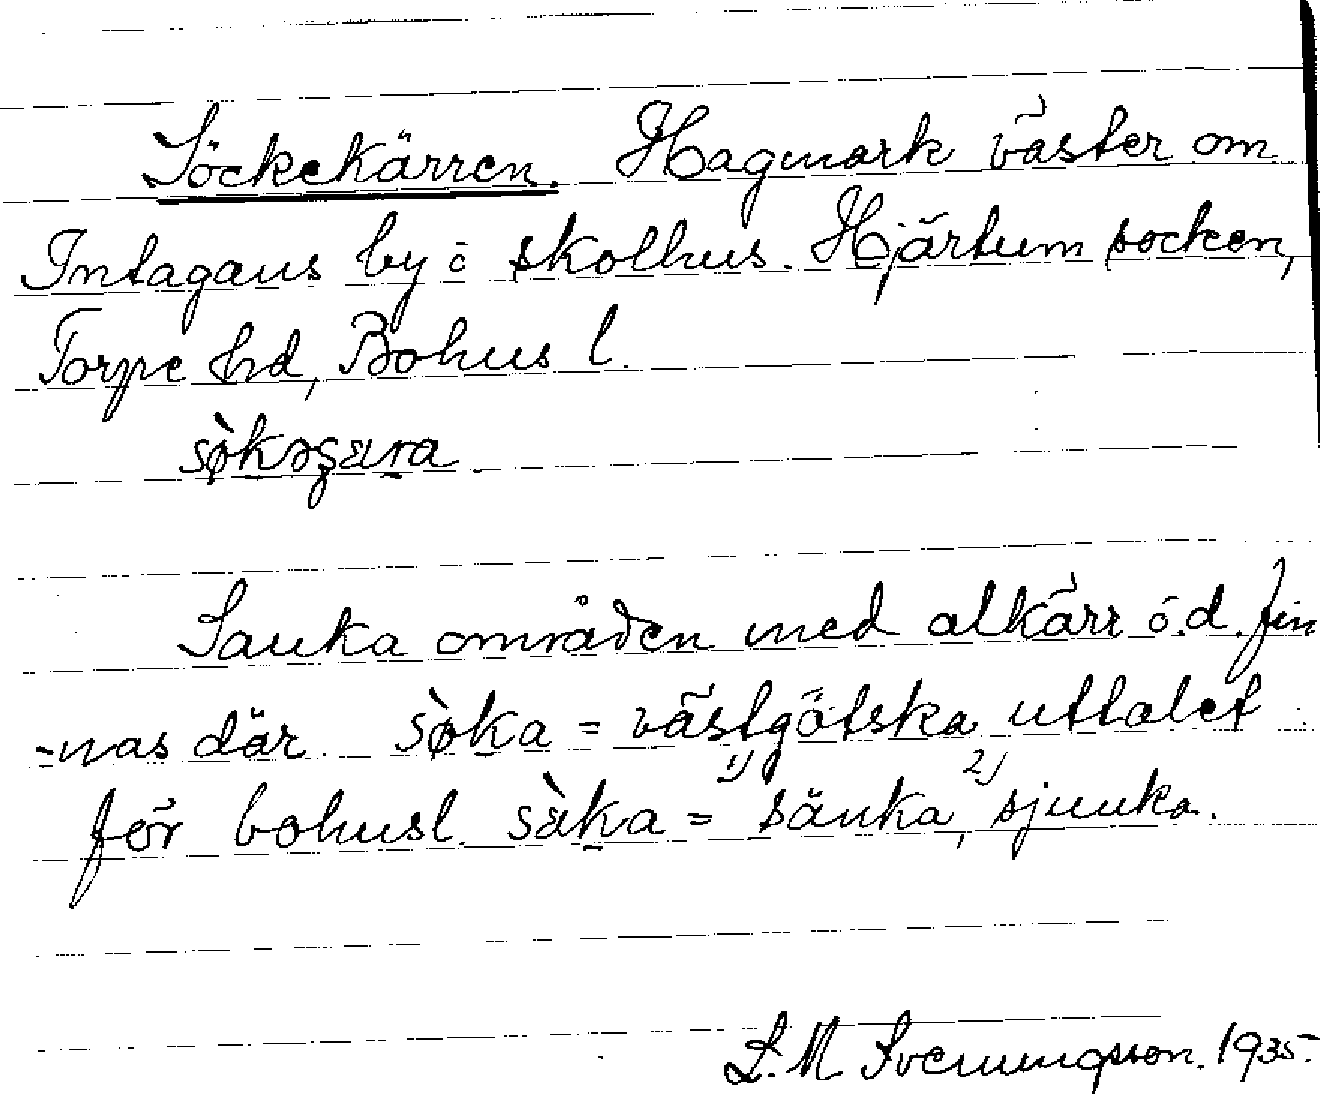 Söckekärren. Hagmark väster om
Intagans by o skolhus. Hjärtum socken,
Torpe hd, Bohus l.
sø̀kəʂæra
Sanka områden med alkärr o.d. fin
-nas där. sø̀ka = västgötska uttalet
för bohusl. sæ̀ka = 1) sänka, 2) sjunka.
L. M. Svenungsson. 1935.